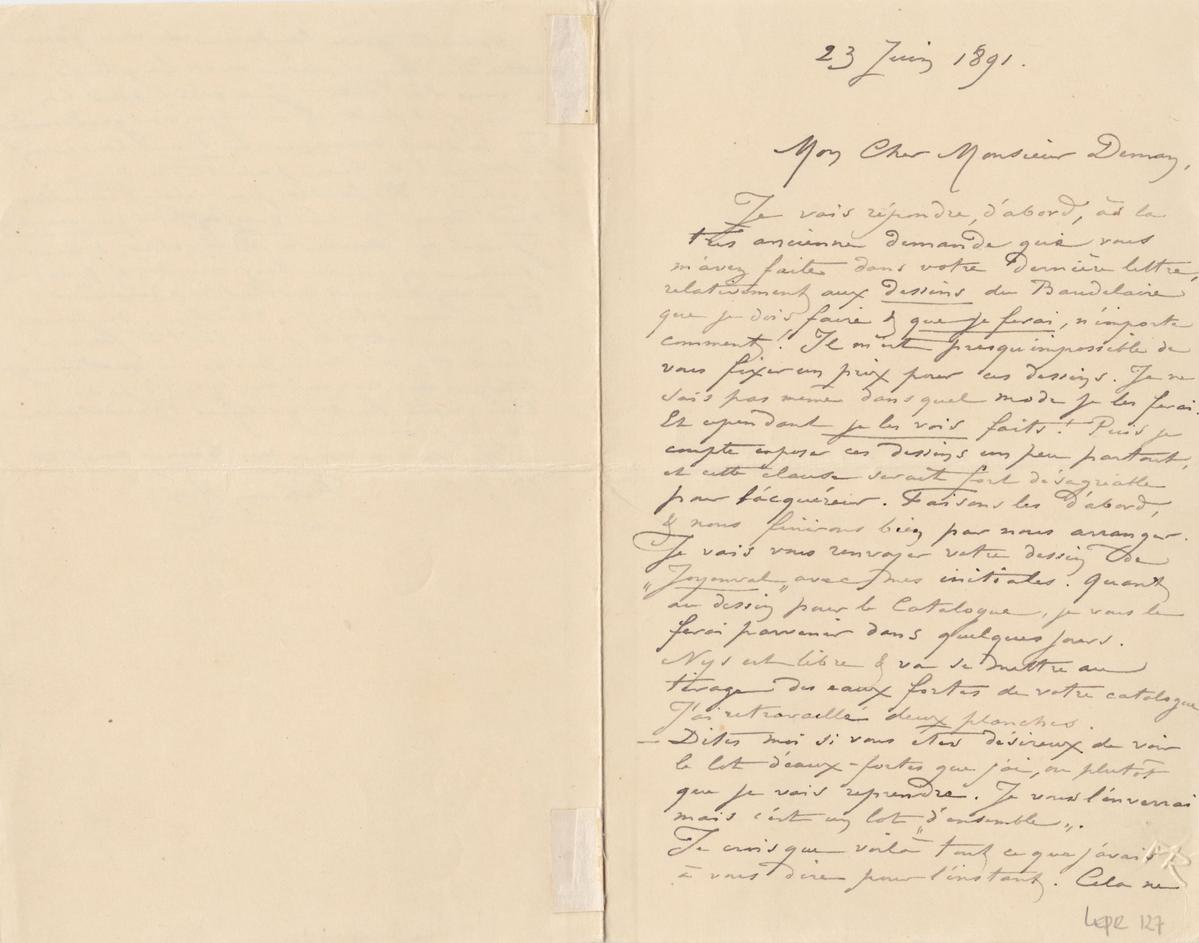 23 Juin 1891.
Mon Cher Monsieur Deman,
Je vais répondre, d'abord, à la
très ancienne demande que vous
m'avez faite dans votre dernière lettre,
relativement aux dessins du Baudelaire
que je dois faire & que je ferai, n'importe
comment! Il m'est presqu'impossible de
vous fixer un prix pour ces dessins. Je ne
sais pas même dans quel mode je les ferai.
Et cependant je les vois faits! Puis je
compte exposer ces dessins un peu partout,
et cette clause serait fort désagréable
pour l'acquéreur. Faisons les d'abord,
& nous finirons bien par nous arranger.
Je vais vous renvoyer votre dessin de
"Joyenval" avec mes initiales. Quant
au dessin pour le Catalogue, je vous le
ferai parvenir dans quelques jours.
Nys est libre & va se mettre au
tirage des eaux fortes de votre catalogue
J'ai retravaillé deux planches.
— Dites moi si vous êtes désireux de voir
le lot d'eaux-fortes que j'ai, ou plutôt
que je vais reprendre. Je vous l'enverrai
mais c'est un lot "d'ensemble".
Je crois que voilà tout ce que j'avais
à vous dire pour l'instant. Cela ne
LEPR 127